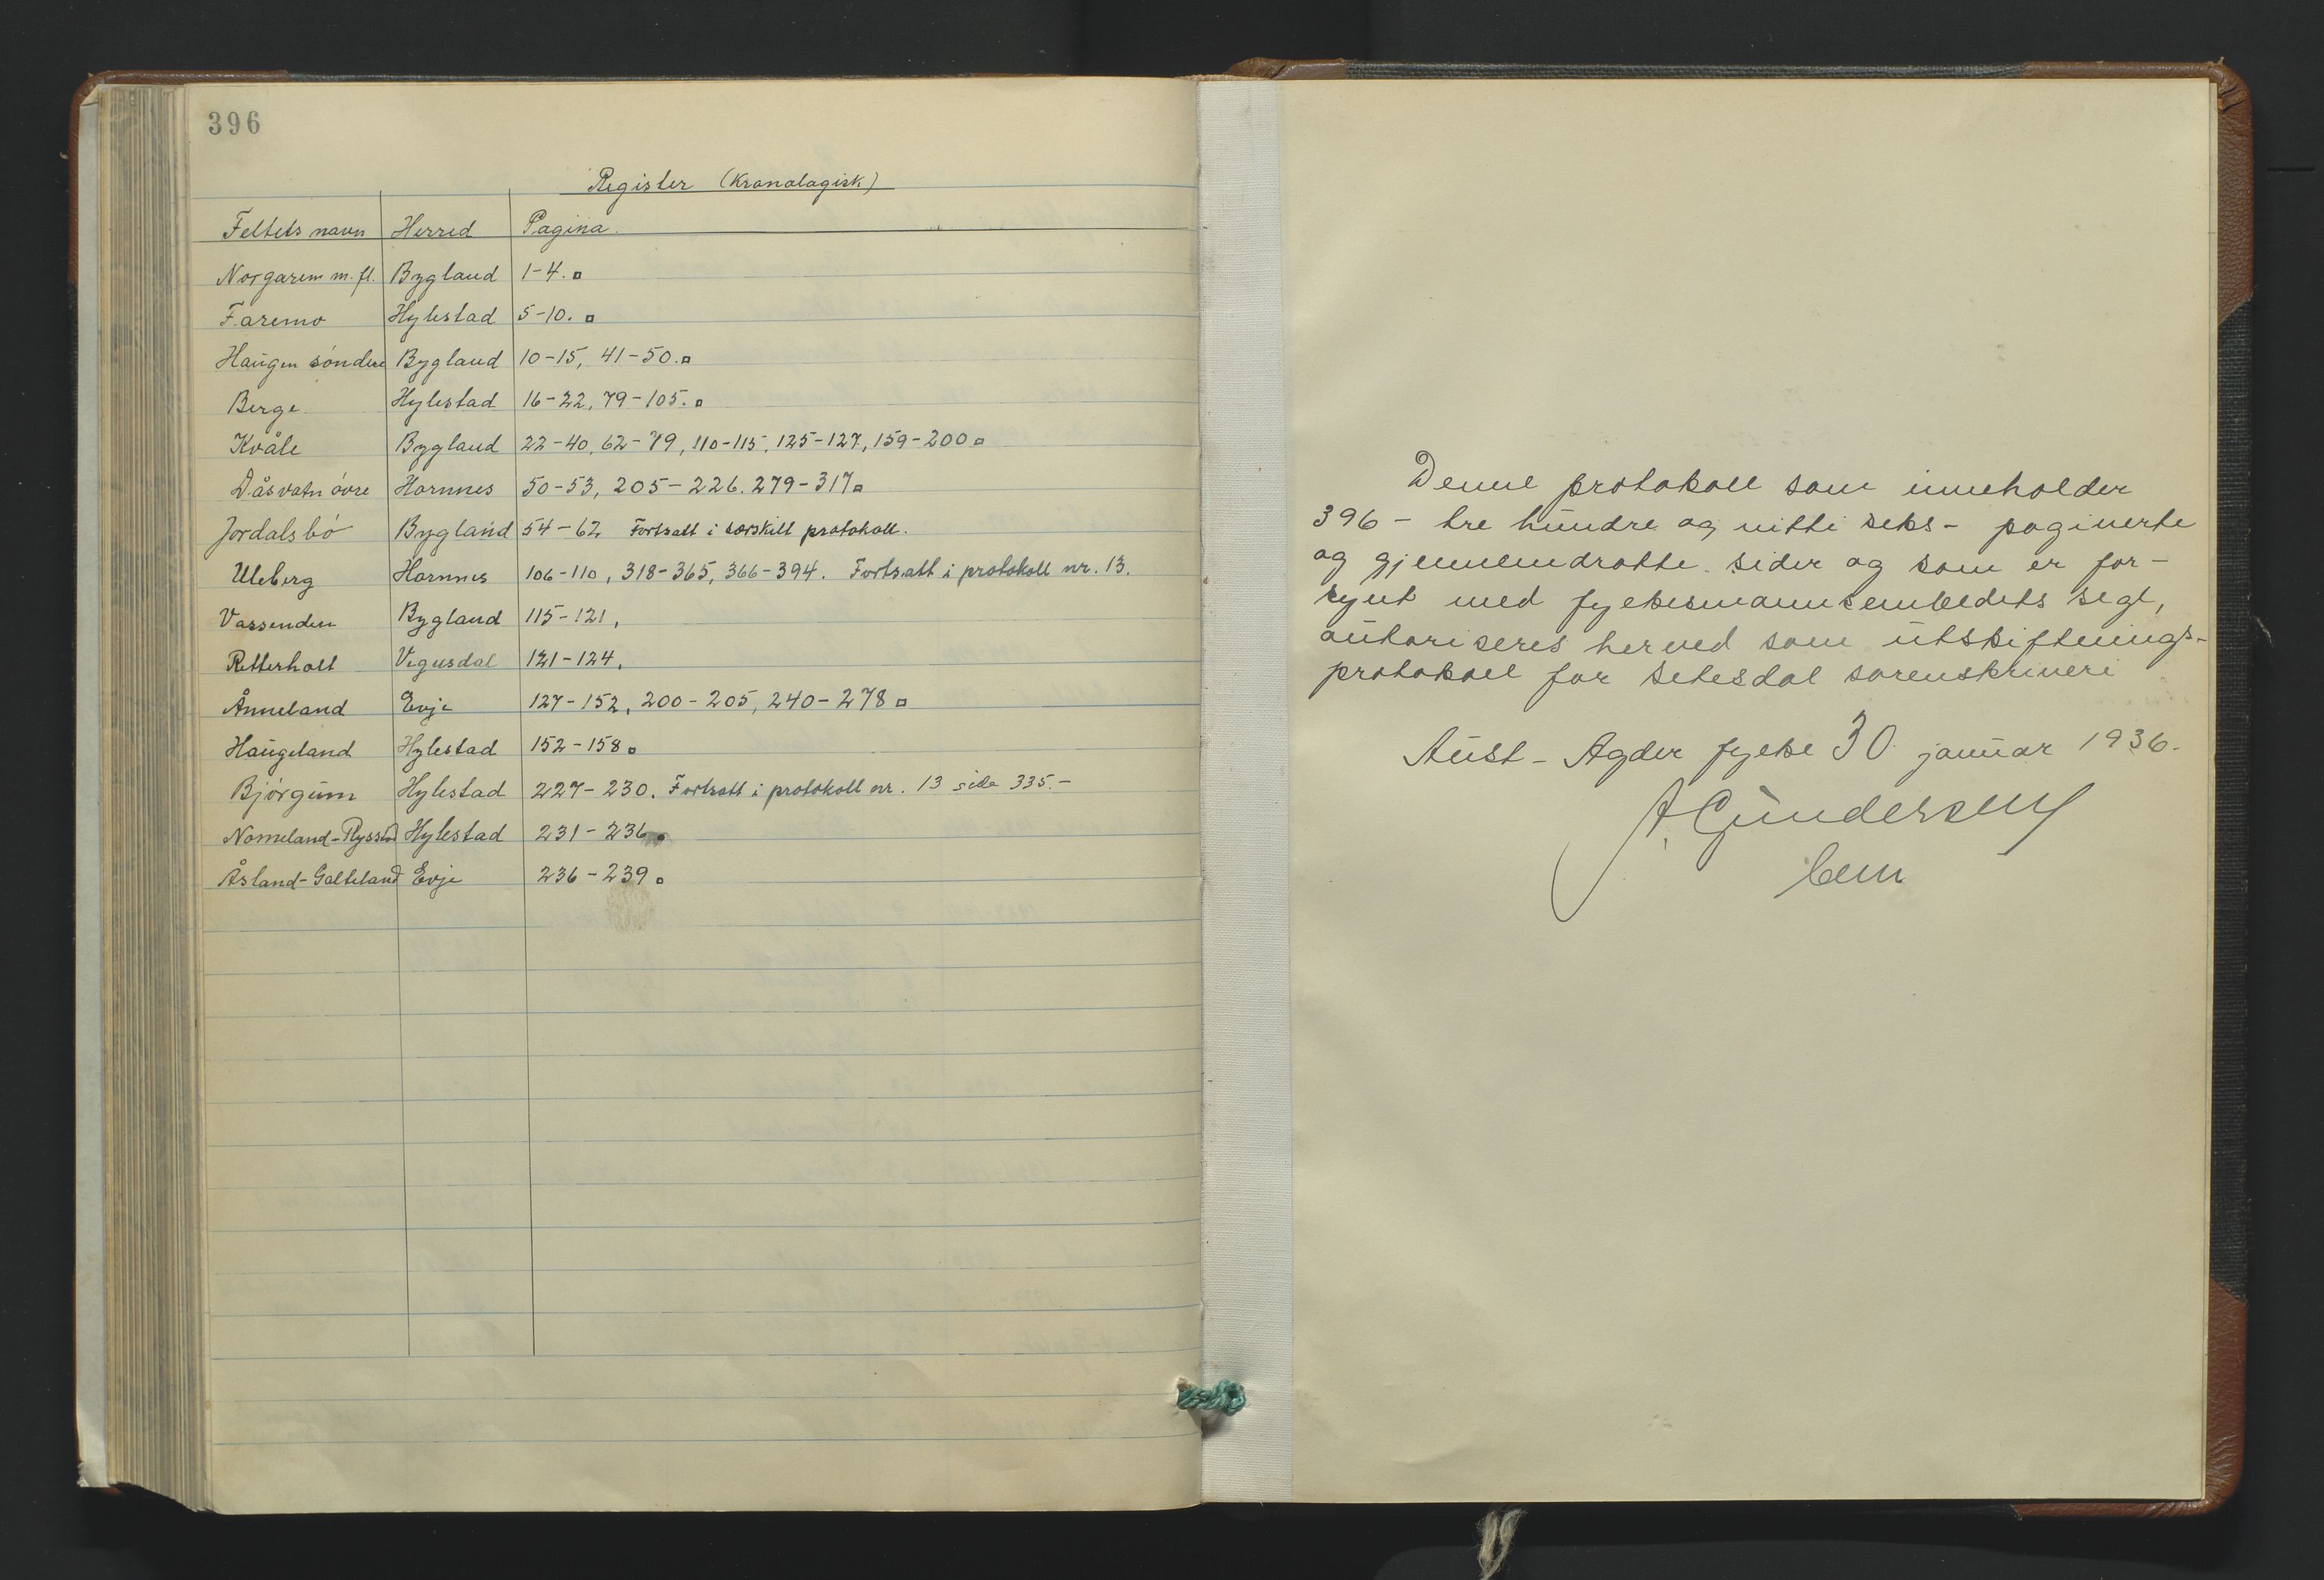 396
Register (Kronologisk)
Feltets navn Herred Pagina.
Norgarem m. fl. Bygland 1-4.
Faremo Hylestad 5-10.
Haugen söndre Bygland 10-15, 41-50.
Berge Hylestad 16-22, 79-105.
Kvåle Bygland 22-40, 62-79, 110-115, 125-127, 159-200
Dåsvatn övre Hornnes 50-53, 205-226. 279-317
Jordalsbö Bygland 54-62 Fortsatt i særskilt protokoll.
Uleberg Hornnes 106-110, 318-365, 366-394. Fortsatt i protokoll nr. 13.
Vassenden Bygland 115-121,
Retterholt Vegusdal 121-124,
Ånneland Evje 127-152, 200-205, 240-278
Haugeland Hylestad 152-158
Bjørgum Hylestad 227-230. Fortsatt i protokoll nr. 13 side 335.-
Nomeland-Rysstad Hylestad 231-236
Åsland-Galteland Evje 236-239
Denne protokoll som inneholder
396 - tre hundre og nitti seks - paginerte
og gjennemdratte sider og som er for-
synt med fylkesmannsembedets segl,
autoriseres herved som utskiftnings-
protokoll for Setesdal sorenskriveri
Aust-Agder fylke 30. januar 1936.
A. Gundersen